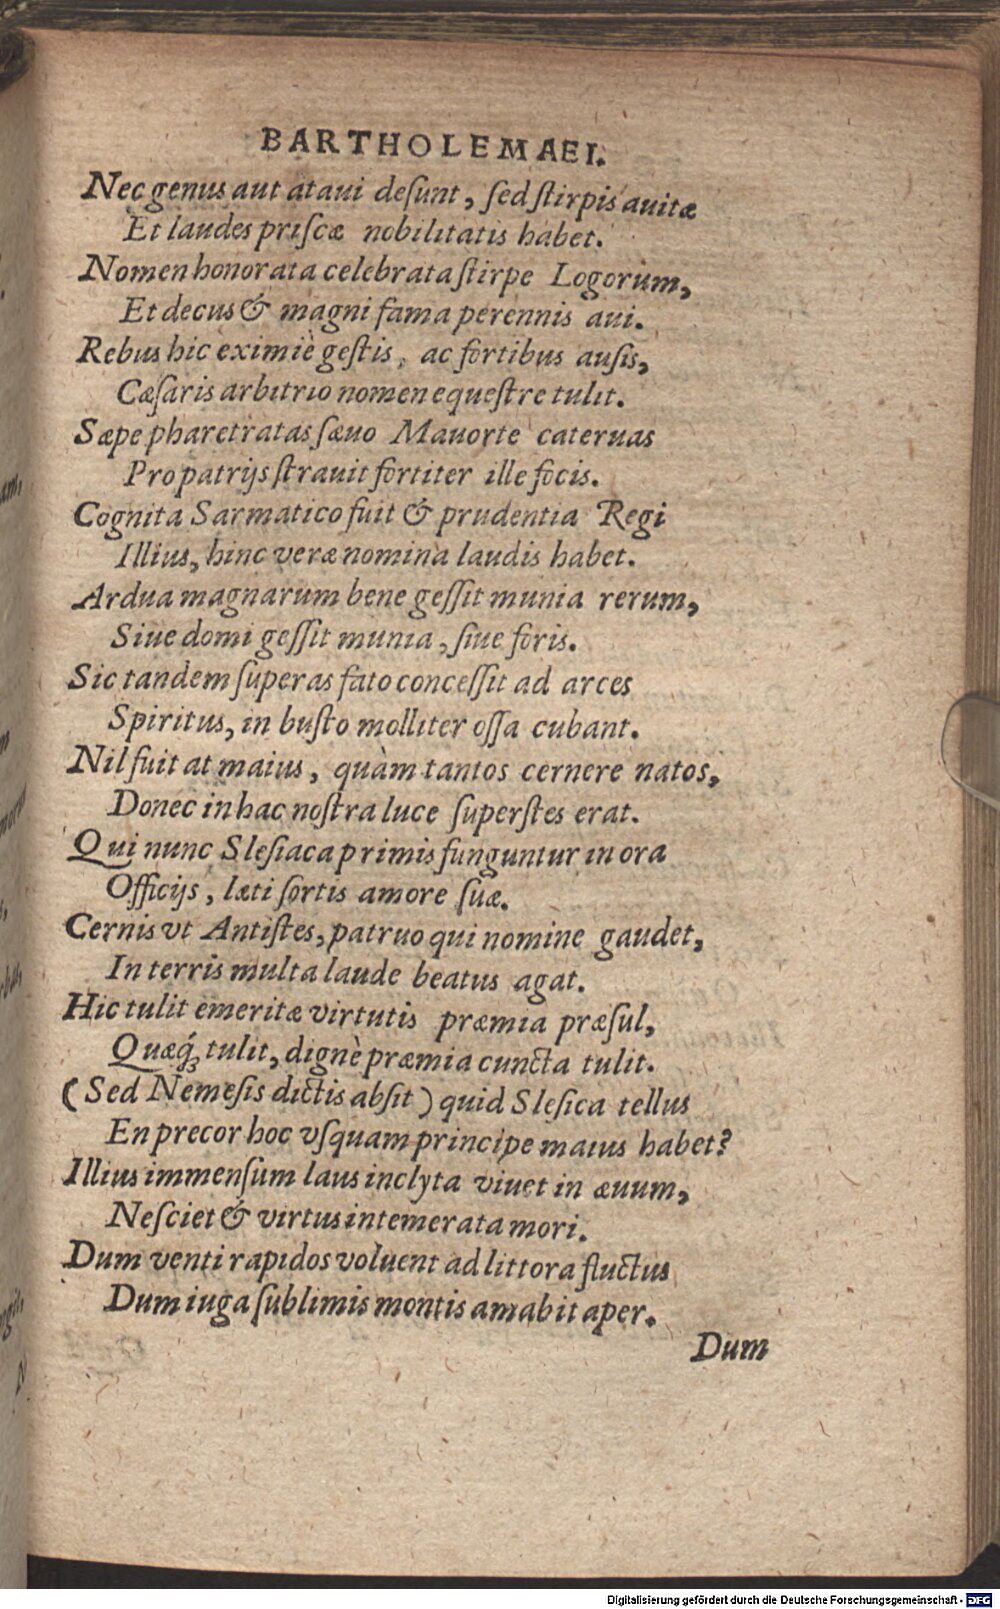 BARTHOLEMAEI.
Nec genus aut ataui deſunt, ſed ſtirpis auitæ
Et laudes priſcæ nobilitatis habet.
Nomen honorata celebrata ſtirpe Logorum,
Et decus & magni fama perennis aui.
Rebus hic eximiè geſtis, ac fortibus auſis,
Cæſaris arbitrio nomen equeſtre tulit.
Sæpe pharetratas ſæuo Mauorte cateruas
Pro patrijs ſtrauit fortiter ille focis.
Cognita Sarmatico fuit & prudentia Regi
Illius, hinc veræ nomina laudis habet.
Ardua magnarum bene geſſit munia rerum,
Siue domi geſſit munia, ſiue foris.
Sic tandem ſuperas fato conceſſit ad arces
Spiritus, in buſto molliter oſſa cubant.
Nil fuit at maius, quàm tantos cernere natos,
Donec in hac noſtra luce ſuperſtes erat.
Qui nunc Sleſiaca primis funguntur in ora
Officijs, læti ſortis amore ſuæ.
Cernis vt Antiſtes, patruo qui nomine gaudet,
In terris multa laude beatus agat.
Hic tulit emeritæ virtutis præmia præſul,
Quæq́; tulit, dignè præmia cuncta tulit.
(Sed Nemeſis dictis abſit) quid Sleſica tellus
En precor hoc vſquam principe maius habet?
Illius immenſum laus inclyta viuet in æuum,
Neſciet & virtus intemerata mori.
Dum venti rapidos voluent ad littora fluctus
Dum iuga ſublimis montis amabit aper.
Dum
am,
Digitalisierung gefördert durch die Deutsche Forschungsgemeinschaft - DFG